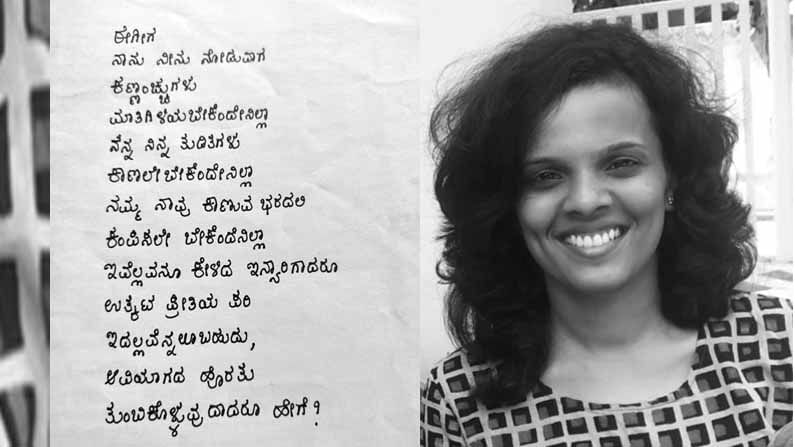 ಈಗೀಗ
ನಾನು ನೀನು ನೋಡುವಾಗ
ಕಣ್ಣಂಚ್ಚುಗಳು
ಮಾತಿಗಿಳಿಯಬೇಕೆಂದೇನಿಲ್ಲಾ
ನೆನ್ನ ನಿನ್ನ ತುಡಿತಗಳು
ಕಾಣಲೇಬೇಕೆಂದೇನಿಲ್ಲಾ
ನಮ್ಮ ನಾವು ಕಾಣುವ ಭರದಲಿ
ಕಂಪಿಸಲೇ ಬೇಕೆಂದೆನಿಲ್ಲಾ
ಇವೆಲ್ಲವನೂ ಕೇಳಿದ ಇನ್ಸಾರಿಗಾದರೂ
ಉತ್ಕಟ ಪ್ರೀತಿಯ ಪರಿ
ಇದಲ್ಲವೆನ್ನಲೂಬಹುದು,
ಆವಿಯಾಗದ ಹೊರತು
ತುಂಬಿಕೊಳ್ಳುವುದಾದರೂ ಹೇಗೆ?